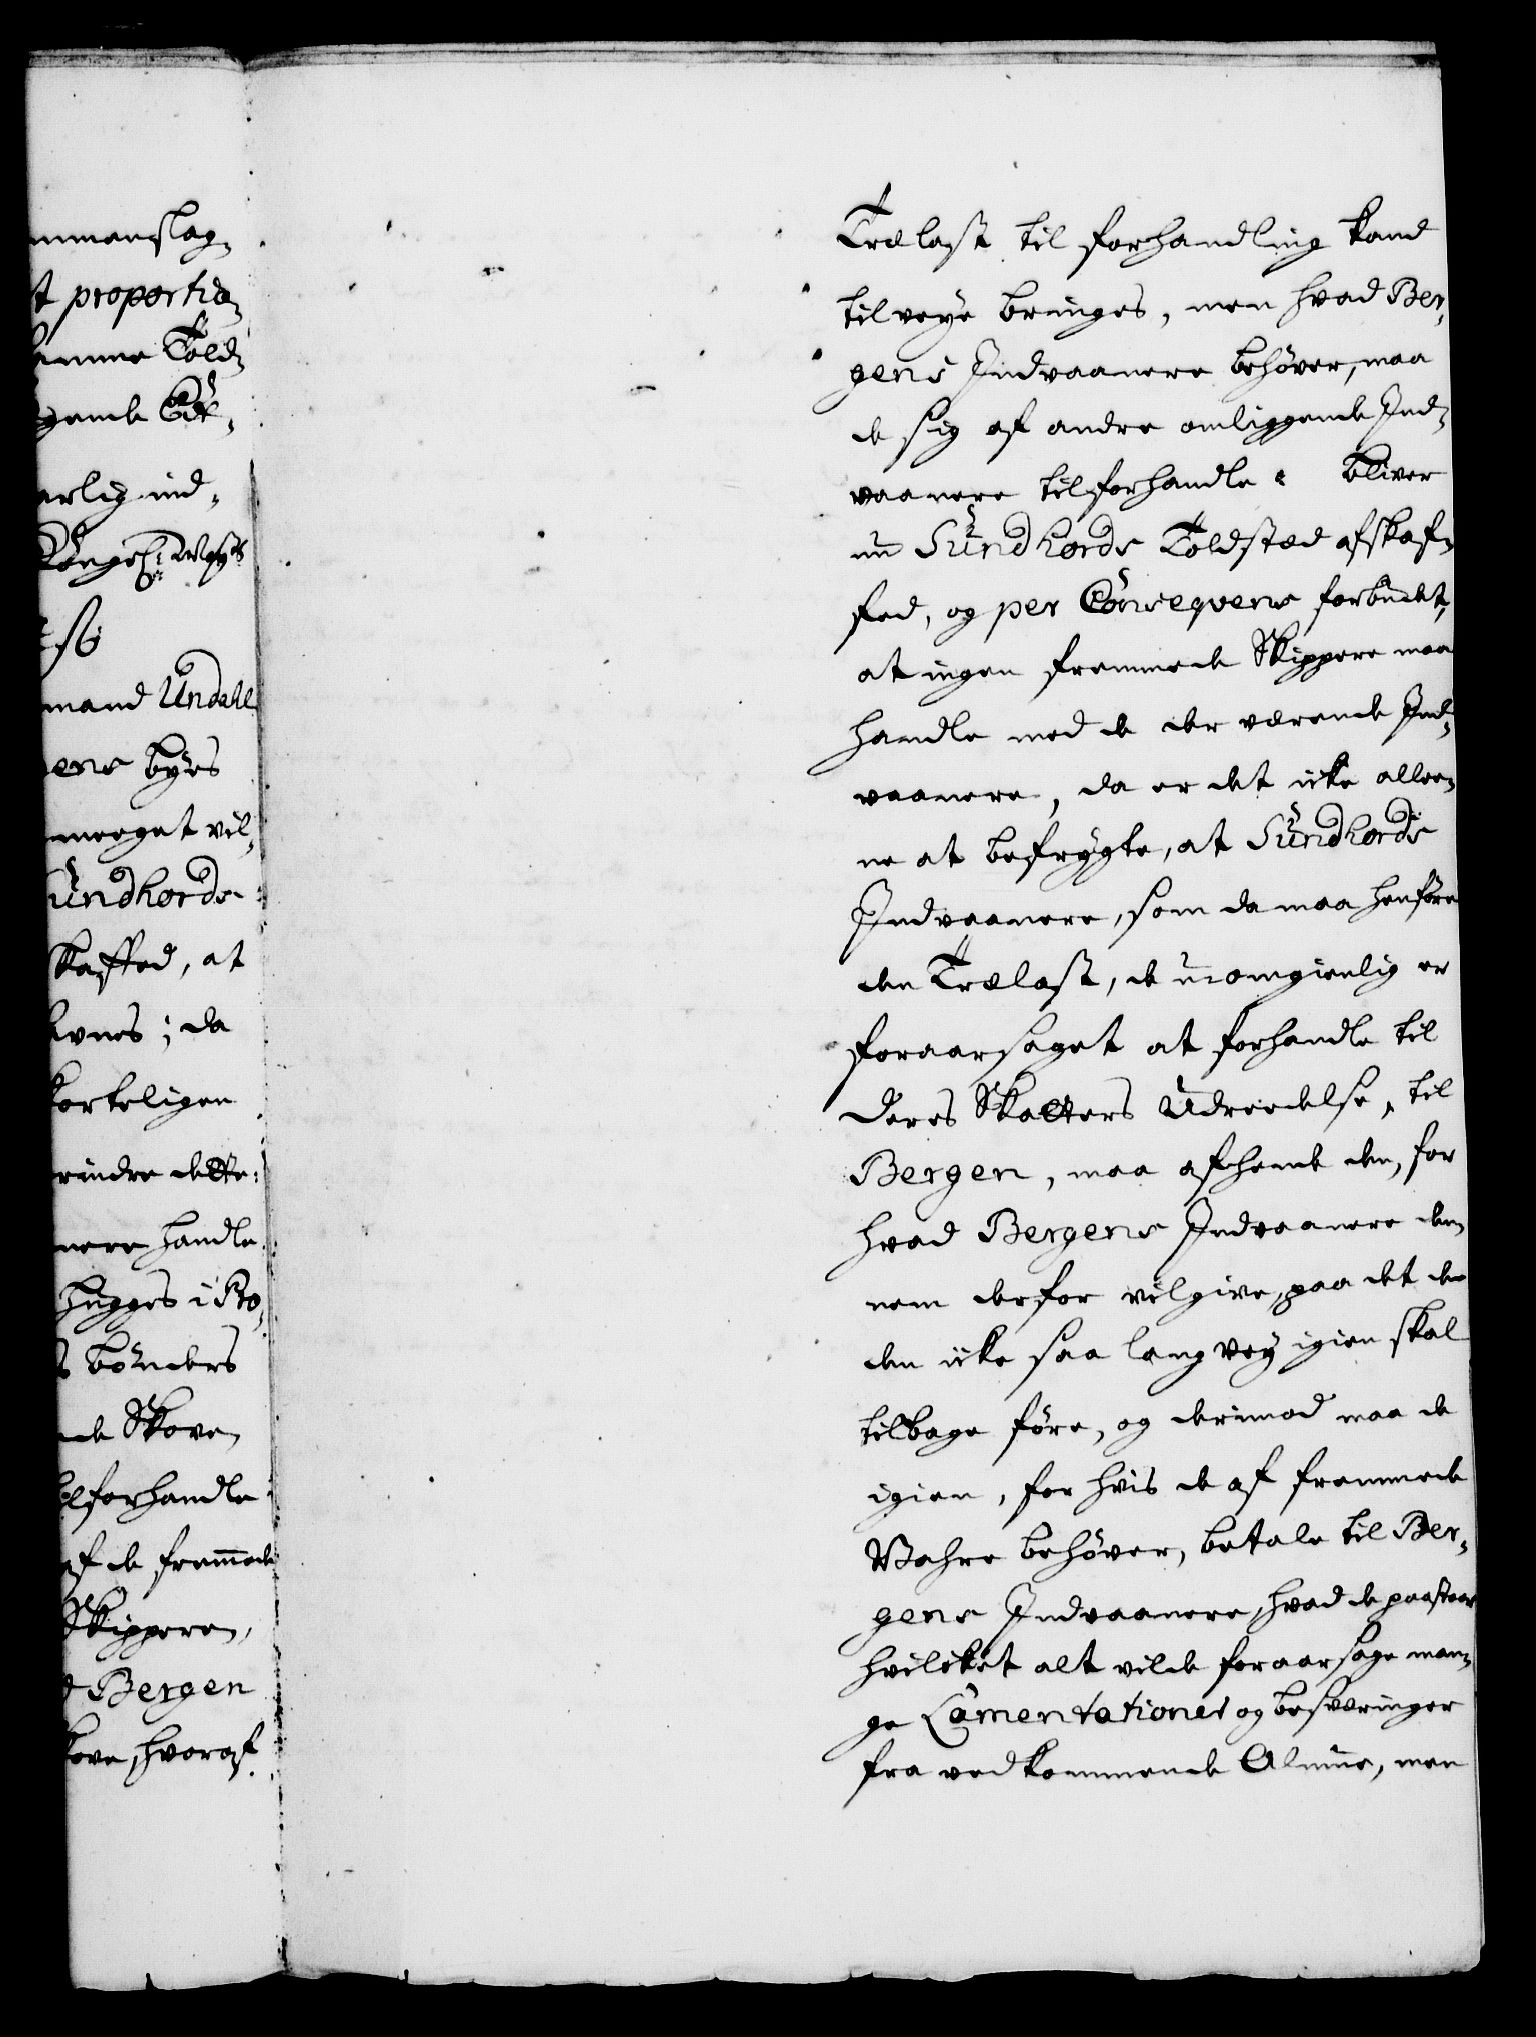 mmenslag,
t proportio,
amme Told,
gende
arlig ind,
Kongel: Mayts
mand Undall
ens byes
meeget vil,
undhords
kaffed, at
korteligen
rindre dette:
nere handle
hugges i
s bønders
nde Skove,
lforhandle
af de fremmede
Skippere,
d Bergen
kove, hvoraf
Trælast til forhandling kand
til veye bringes, men hvad Ber,
gens Indvaanere behøver, maa
de sig af andre omliggende Ind,
vaanere tilforhandle. bliver
nu Sundhords Toldsted afskaf,
fed, og per Conseqvens forbudet,
at ingen fremmede Skippere maa
handle med de der værende Ind,
vaanere, da er det icke allee,
ne at befrygte, at Sundhords
Indvaanere, som da maa henføre
den Trælast, de uomgienlig er
foraarsaget at forhandle til
deres Skatters Udreedelse, til
Bergen, maa afhende den, for
hvad Bergens Indvaanere den,
nem derfor vil give, paa det de
den icke saa lang Vey igien skal
tilbage føre, og derimod maa de
igien, for hvis de af fremmede
Vahre behøver, betale til Ber,
gens Indvaanere, hvad de paastaar
hvilcket alt vilde foraarsage man,
ge Lamentationer og besværinger
fra vedkommende Almue, men